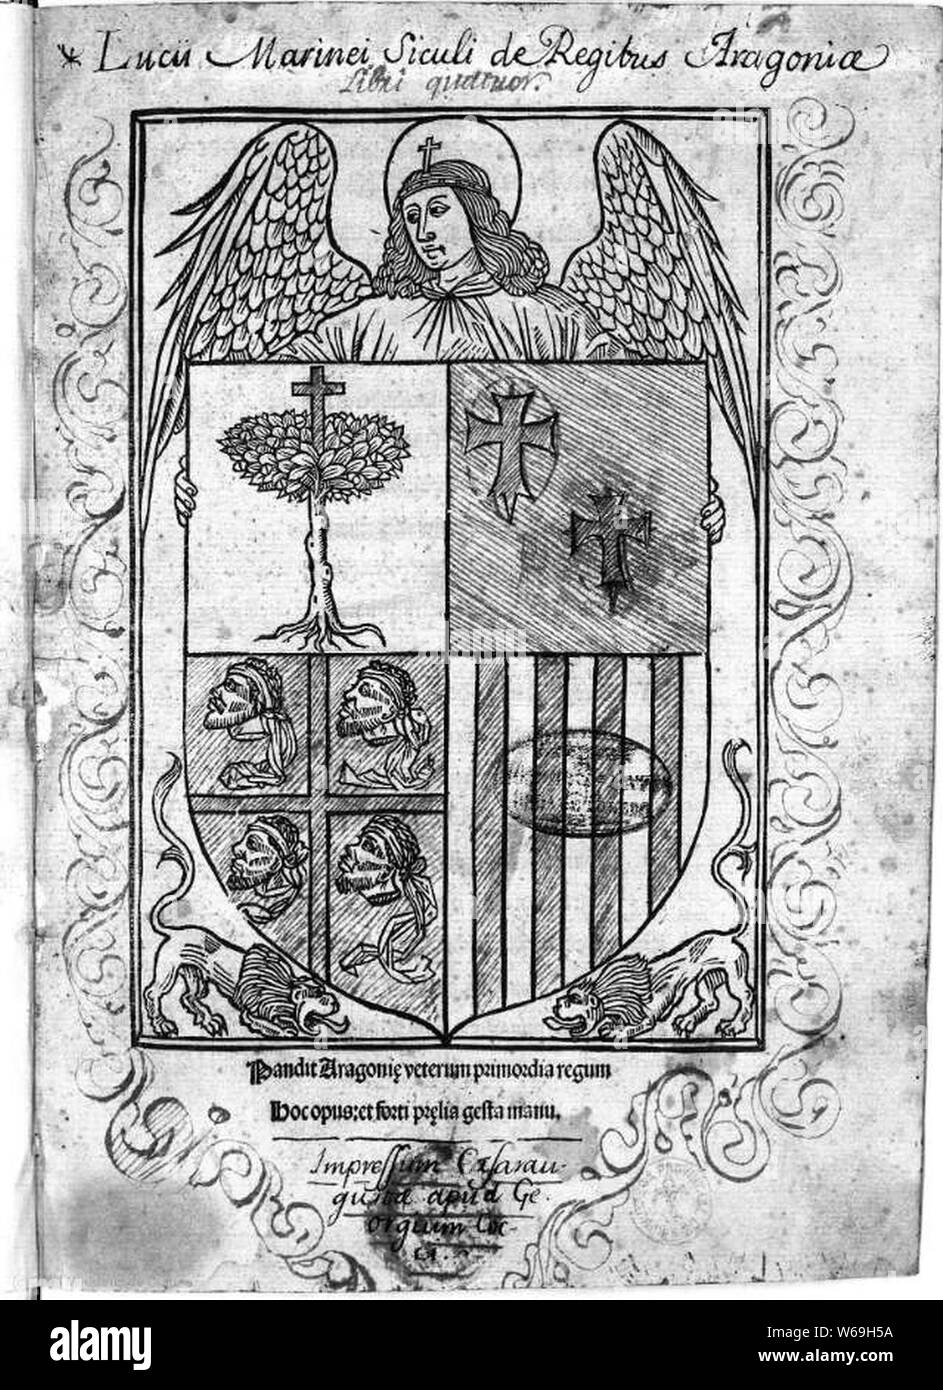 Lucii Marinei Siculi de Regibus Aragoniæ
Libri quatuor.
Pandit Aragonię veterum primordia regum
Hoc opus: et forti pręlia gesta manu.
Impressum Cæsarau-
gustæ apud Ge-
orgium Coc-
ci.
alamy
Image ID: W69H5A
www.alamy.com